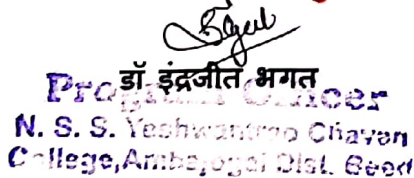 डॉ इंद्रजीत भगत
Officer
N. S. S. Yeshwantrao Chavan
College, Ambajogai Dist. Beed